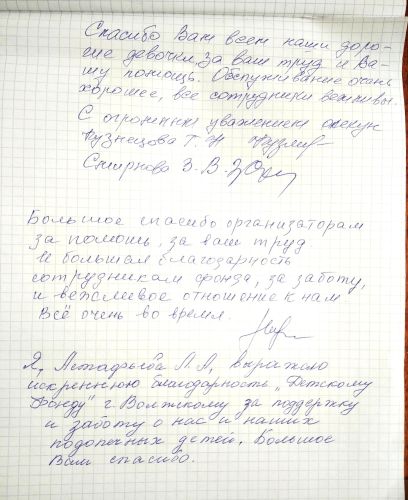 Спасибо Вам всем наши доро-
гие девочки за ваш труд и Ва-
шу помощь. Обслуживание очень
хорошее, все сотрудники вежливы.
С огромным уважением опекун
Кузнецова Т. Н
Смирнова З. В.
Большое спасибо организаторам
за помошь, за ваш труд
И большая благодарность
сотрудникам фонда, за заботу,
и вежливое отношение к нам
Всё очень во время.
Я, Астафьева Л. А, выражаю
искреннюю благодарность „Детскому
Фонду" г. Волжскому за поддержку
и заботу о нас и наших
подопечных детей. Большое
Вам спасибо.